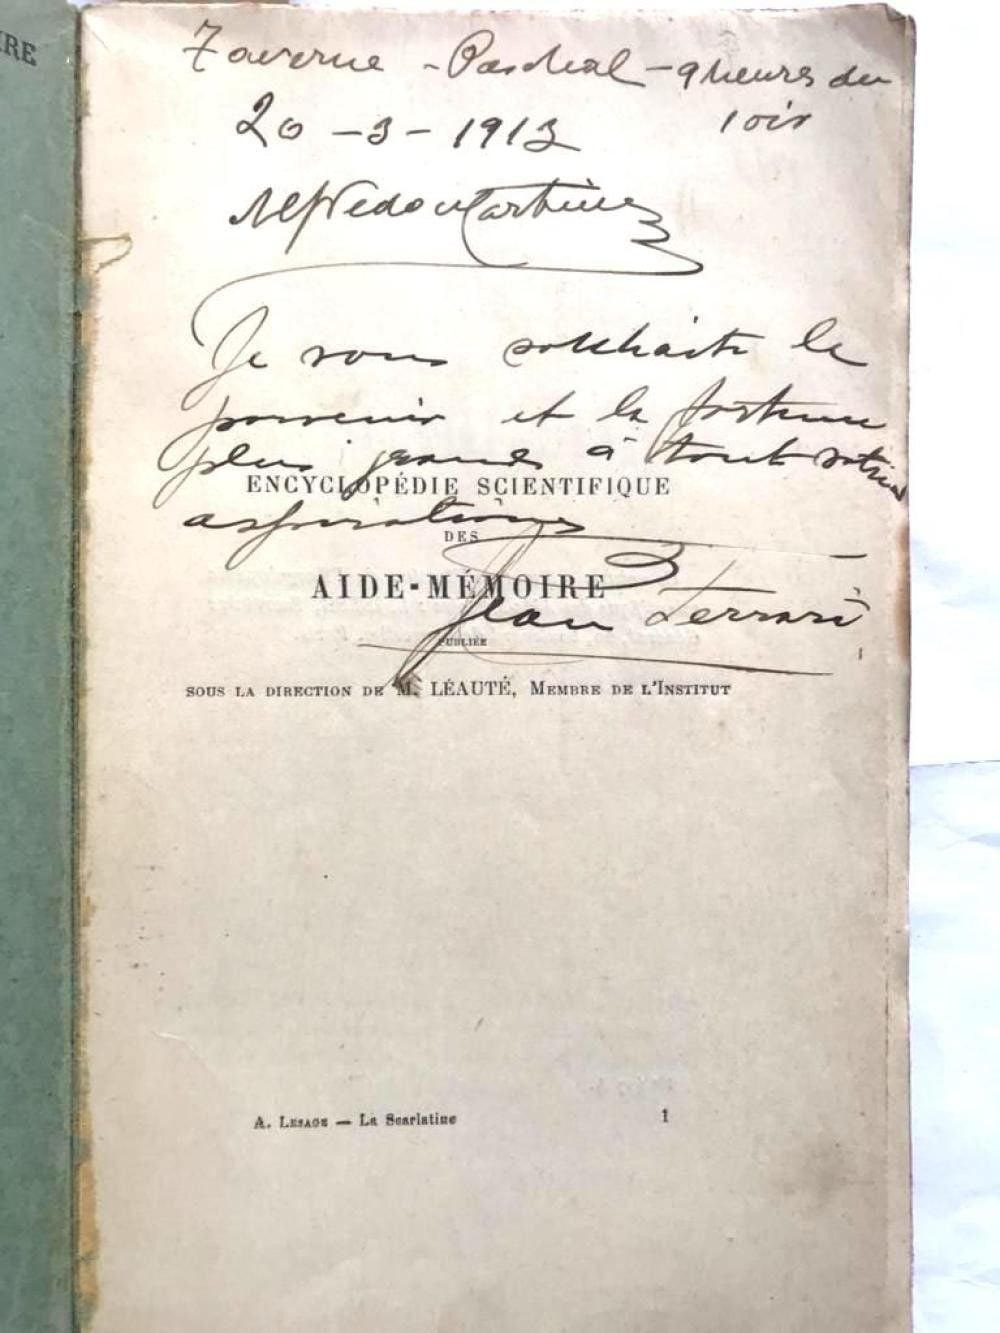 IRE
Taverne - Paschal - 9 heures du
soir
20 - 3 - 1913
Alfredo Martinez
Je vous souhaite le
souvenir et la fortune
plus grands à tout votre
aspirations
ENCYCLOPÉDIE SCIENTIFIQUE
DES
AIDE-MÉMOIRE
Jean Ferrari
PUBLIÉE
SOUS LA DIRECTION DE M. LÉAUTÉ, MEMBRE DE L'INSTITUT
A. LESAGE — La Scarlatine 1